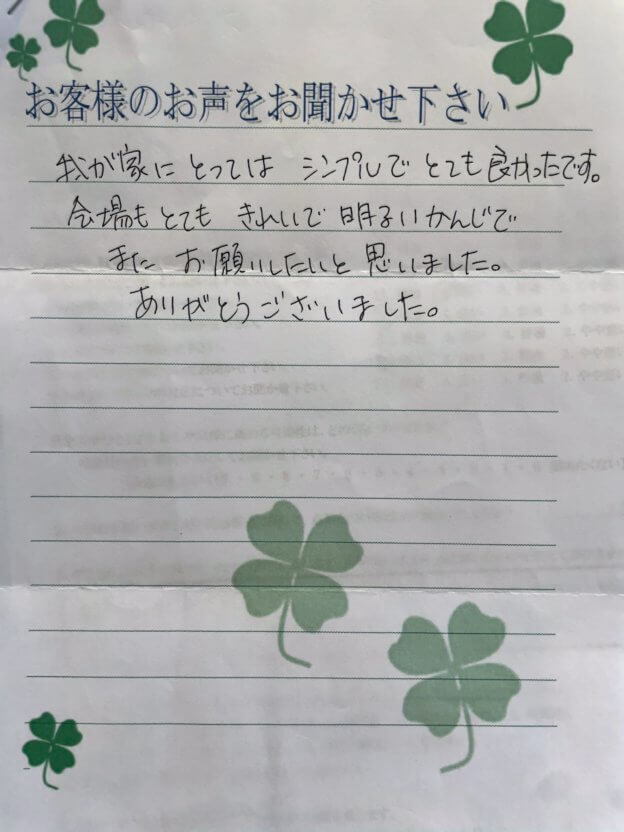 お客様のお声をお聞かせ下さい
我が家にとっては シンプルで とても良かったです。
会場もとても きれいで 明るいかんじで
また お願いしたいと 思いました。
ありがとうございました。